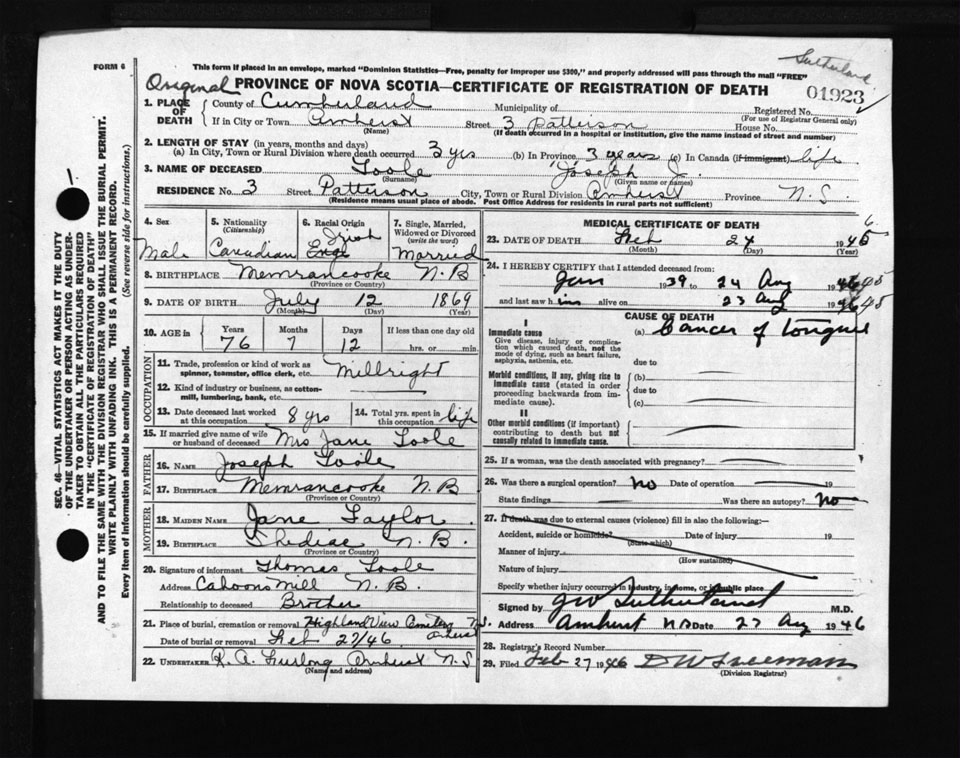 FORM 6
This form if placed in an envelope, marked "Dominion Statistics—Free, penalty for improper use $300," and properly addressed will pass through the mail "FREE"
Sutherland
Original PROVINCE OF NOVA SCOTIA—CERTIFICATE OF REGISTRATION OF DEATH
01923
1. PLACE OF DEATH
County of Cumberland Municipality of Registered No.
(For use of Registrar General only)
If in City or Town Amherst Street 3 Patterson House No.
(Name) (If death occurred in a hospital or institution, give the name instead of street and number)
2. LENGTH OF STAY (in years, months and days)
(a) In City, Town or Rural Division where death occurred 3 yrs (b) In Province 3 years (c) In Canada (if immigrant) life
3. NAME OF DECEASED Toole Joseph J.
(Surname) (Given name or names)
RESIDENCE No. 3 Street Patterson City, Town or Rural Division Amherst Province N.S.
(Residence means usual place of abode. Post Office Address for residents in rural parts not sufficient)
4. Sex Male
5. Nationality (Citizenship) Canadian
6. Racial Origin Irish Eng.
7. Single, Married, Widowed or Divorced (write the word) Married
8. BIRTHPLACE Memrancooke N.B
(Province or Country)
9. DATE OF BIRTH July 12 1869
(Month) (Day) (Year)
10. AGE in Years Months Days If less than one day old
76 7 12 hrs. or min.
OCCUPATION
11. Trade, profession or kind of work as spinner, teamster, office clerk, etc. Millright
12. Kind of industry or business, as cotton-mill, lumbering, bank, etc.
13. Date deceased last worked at this occupation 8 yrs
14. Total yrs. spent in this occupation life
15. If married give name of wife or husband of deceased Mrs Jane Toole
FATHER
16. NAME Joseph Toole
17. BIRTHPLACE Memrancooke N.B
(Province or Country)
MOTHER
18. MAIDEN NAME Jane Taylor
19. BIRTHPLACE Shediac N.B.
(Province or Country)
20. Signature of informant Thomas Toole
Address Cahoon Mill N.B.
Relationship to deceased Brother
21. Place of burial, cremation or removal Highland View Cemetery Amherst N.S.
Date of burial or removal Feb 27/46
22. UNDERTAKER R. A. Furlong Amherst N.S
(Name and address)
MEDICAL CERTIFICATE OF DEATH
23. DATE OF DEATH Feb 24 1945 6.
(Month) (Day) (Year)
24. I HEREBY CERTIFY that I attended deceased from:
Jan 1939 to 24 Aug 1946 45
and last saw him alive on 23 Aug 1946 45
CAUSE OF DEATH
I
Immediate cause (a) Cancer of tongue
Give disease, injury or complication which caused death, not the mode of dying, such as heart failure, asphyxia, asthenia, etc.
due to
Morbid conditions, if any, giving rise to immediate cause (stated in order proceeding backwards from immediate cause).
(b)
due to
(c)
II
Other morbid conditions (if important) contributing to death but not causally related to immediate cause.
25. If a woman, was the death associated with pregnancy?
26. Was there a surgical operation? No Date of operation 19
State findings Was there an autopsy? No
27. If death was due to external causes (violence) fill in also the following:
Accident, suicide or homicide? Date of injury 19
(State which)
Manner of injury
(How sustained)
Nature of injury
Specify whether injury occurred in industry, in home, or in public place
Signed by JW Sutherland M.D.
Address Amherst NS Date 27 Aug 1946
28. Registrar's Record Number
29. Filed Feb 27 1946 D W Freeman
(Division Registrar)
SEC. 46—VITAL STATISTICS ACT MAKES IT THE DUTY
OF THE UNDERTAKER OR PERSON ACTING AS UNDER-
TAKER TO OBTAIN ALL THE PARTICULARS REQUIRED
IN THE "CERTIFICATE OF REGISTRATION OF DEATH"
AND TO FILE THE SAME WITH THE DIVISION REGISTRAR WHO SHALL ISSUE THE BURIAL PERMIT.
WRITE PLAINLY WITH UNFADING INK. THIS IS A PERMANENT RECORD.
Every item of information should be carefully supplied. (See reverse side for instructions.)